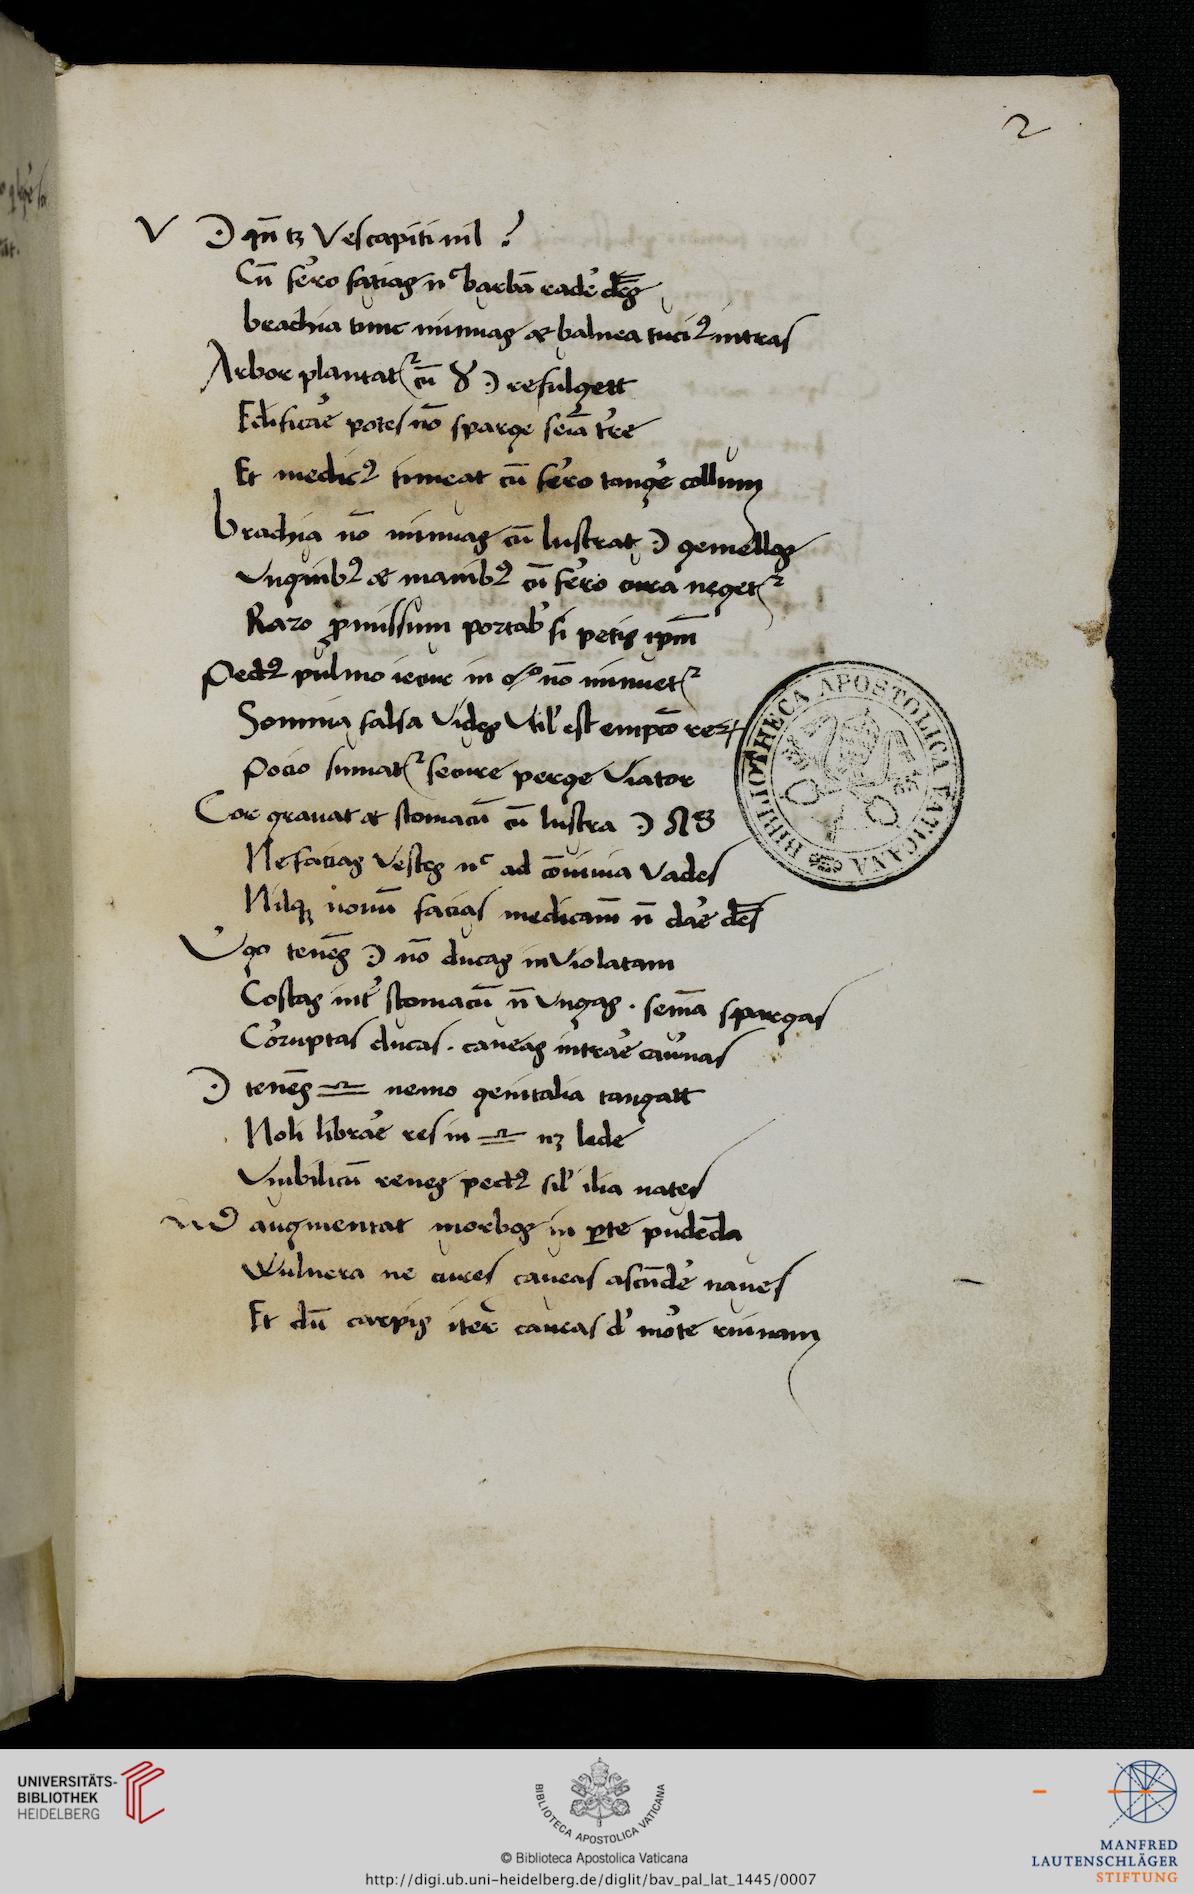 2
V ☽ qn̄ tꝫ Vescapiti nil ?
Cū fe᷒ro facias nᶜ barbā rade᷒ de̅s
brachia tunc minuas et balnea tuciꝰ intras
Arbor plantat᷑ cū ♉ ☽ refulgett
Edificar᷒e potes nō sparge seīa t᷒re
Et medicꝰ timeat cū fe᷒ro tange᷒ collum
brachia nō minuas cū lustrat ☽ gemellos
Vnguibꝰ et manibꝰ cū fe᷒ro cura neget᷑
Raro ꝓmissum portab᷒ si petis ip̄m
Pectꝰ pulmo iecur in ♋ nō minuet᷑
Somnia falsa Vides Vtil᷒ est emptō reꝝ
Pocio sumat᷑ secure perge Viator
Cor grauat et stomacū cū lustra ☽ ♌
Ne facias Vestes nᶜ ad cōuiuia Vades
Nilqꝫ nouū facias medicam̄ n̄ dar᷒e de̅s
V᷒go tene̅s ☽ nō ducas inViolatam
Costas int᷒ stomacū n̄ Vngas . sem̄a spargas
Co᷒ruptas ducas . caueas int᷒rar᷒e cau᷒nas
☽ tene̅s ♎ nemo genitalia tangatt
Noli librar᷒e res in ♎ nꝫ lede᷒
Vmbilicū renes pectꝰ sil᷒ ilia nates
♏ augmentat morbos in ꝑte pudēda
Wulnera ne cures caueas ascēde᷒ naues
Et dū carpis iter caueas d᷒ mōte ruinam
BIBLIOTHECA APOSTOLICA VATICANA
UNIVERSITÄTS-
BIBLIOTHEK
HEIDELBERG
BIBLIOTECA APOSTOLICA VATICANA
© Biblioteca Apostolica Vaticana
http://digi.ub.uni-heidelberg.de/diglit/bav_pal_lat_1445/0007
MANFRED
LAUTENSCHLÄGER
STIFTUNG